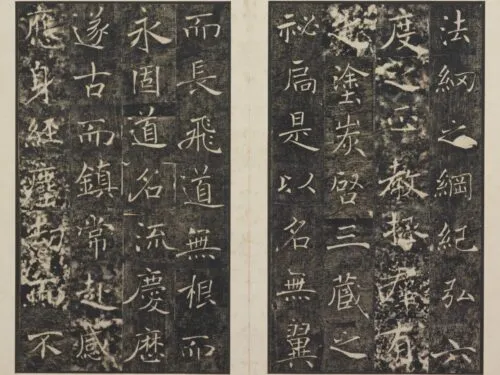 法網之綱紀弘六
度之正教拯群有
之塗炭啓三藏之
祕扃是以名無翼
而長飛道無根而
永固道名流慶歷
遂古而鎮常赴感
應身經塵劫而不